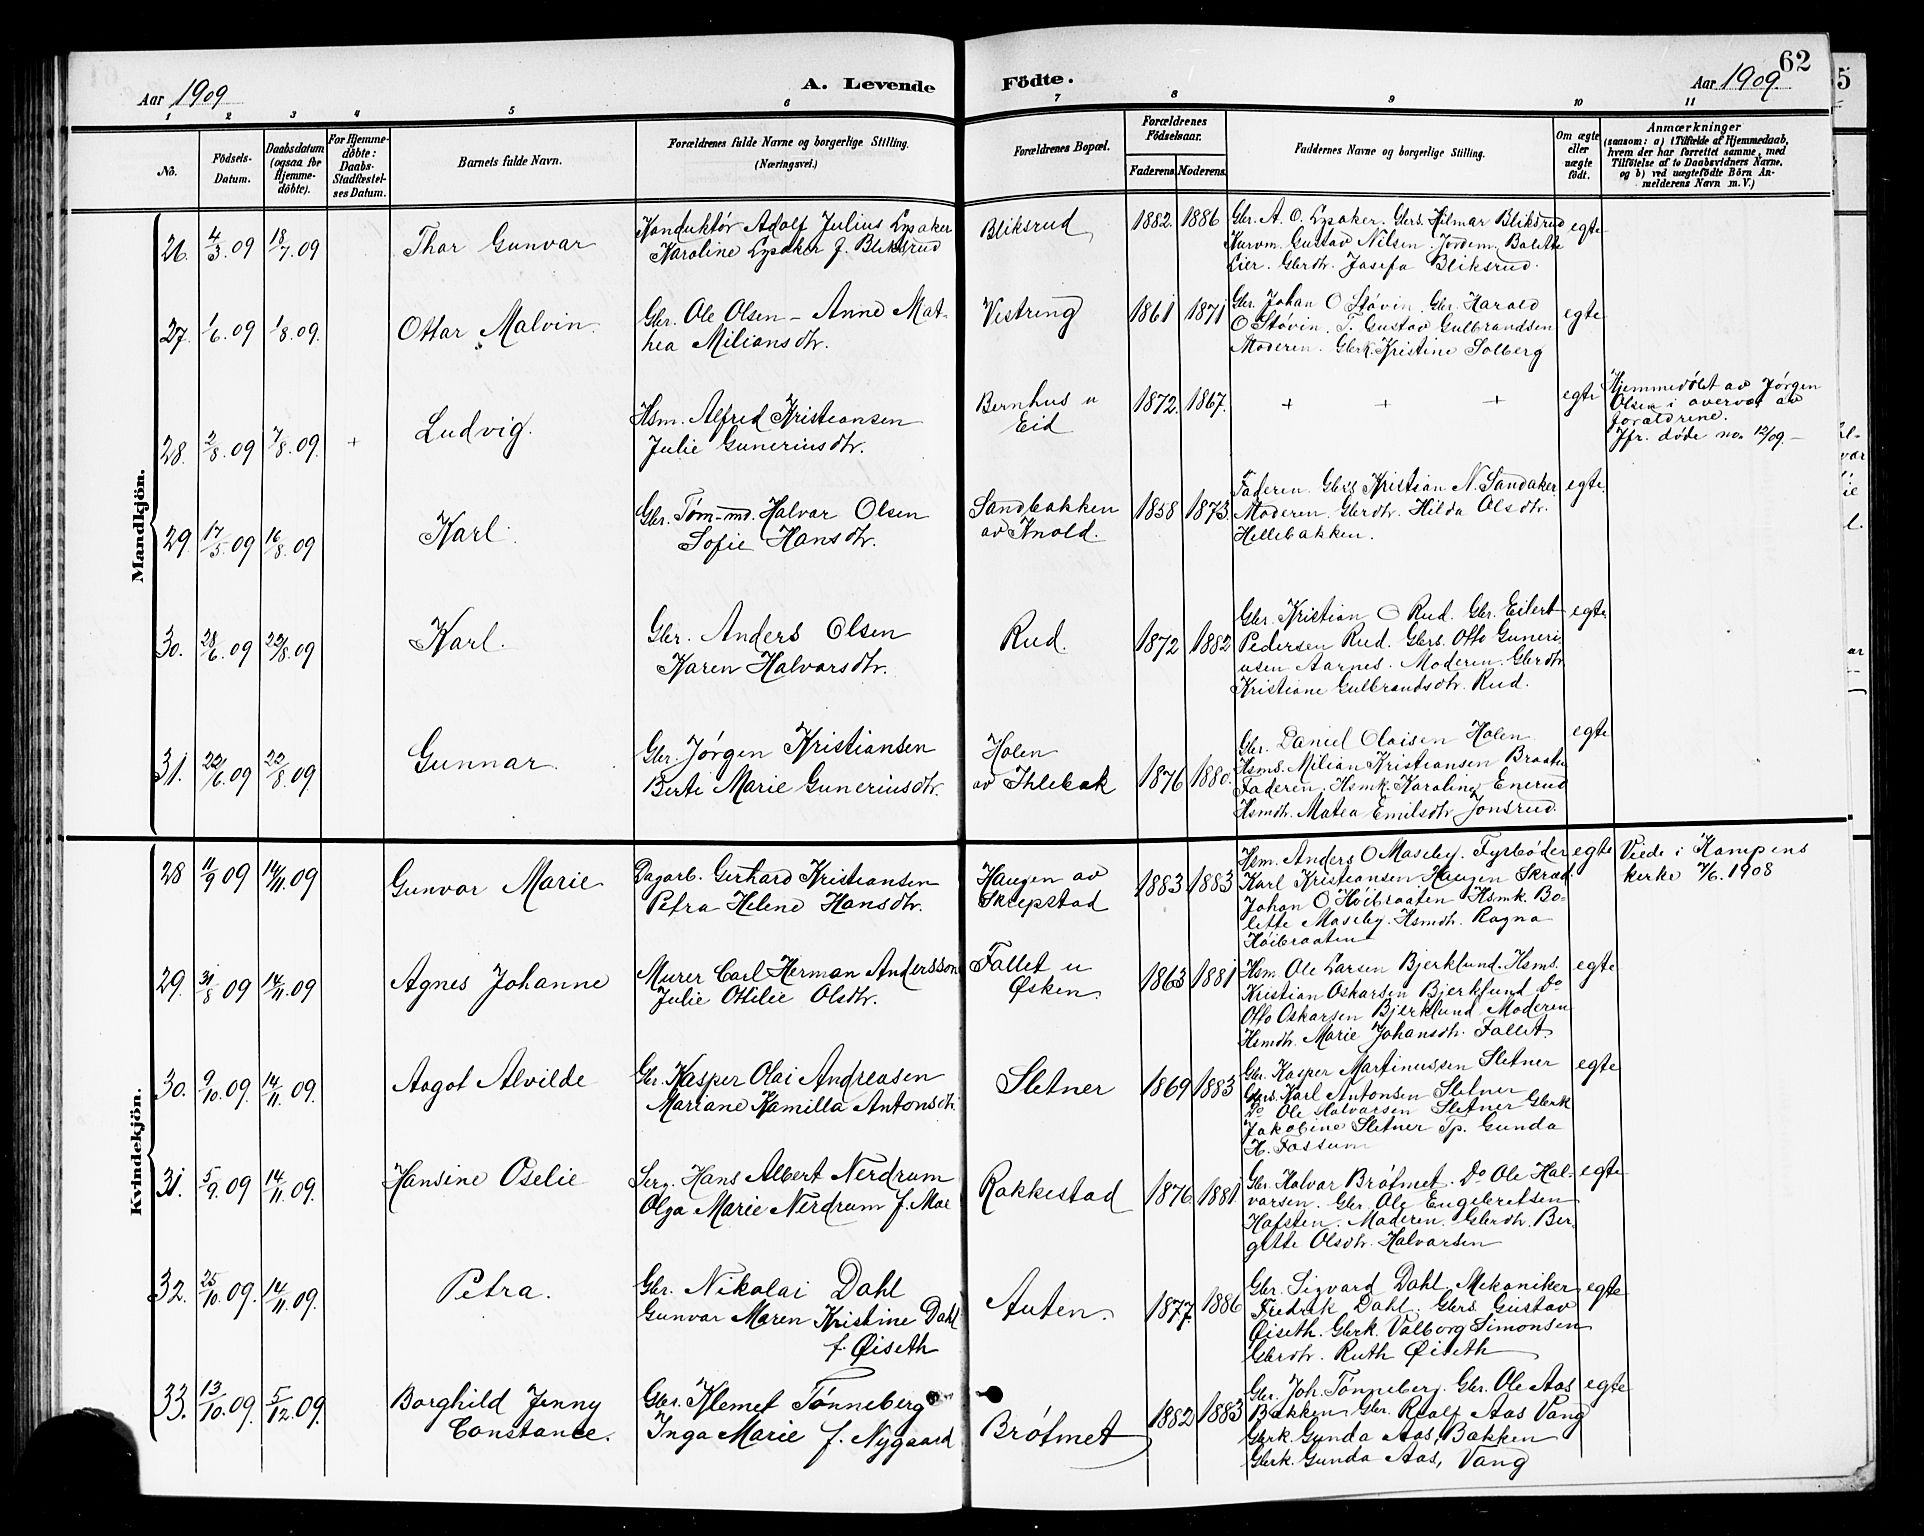 62
Aar 1909
A. Levende Födte.
Aar 1909.
1 2 3 4 5 6 7 8 9 10 11
No.
Födsels-
Datum.
Daabsdatum
(ogsaa for
Hjemme-
döbte).
For Hjemme-
döbte:
Daabs-
Stadfæstel-
ses Datum.
Barnets fulde Navn.
Forældrenes fulde Navne og borgerlige Stilling.
(Næringsvei.)
Forældrenes Bopæl.
Forældrenes
Födselsaar.
Faderens. Moderens.
Faddernes Navne og borgerlige Stilling.
Om ægte
eller
uægte
födt.
Anmærkninger
(saasom: a) i Tilfælde af Hjemmedaab,
hvem der har forrettet samme, med
Tilföielse af to Daabsvidners Navne,
og b) ved uægtefödte Börn An-
melderens Navn m. V.)
Mandkjön.
26. 4/3 09 18/7 09
Thor Gunvar
Konduktør Adolf Julius Lysaker
Karoline Lysaker f. Bliksrud
Bliksrud
1882. 1886
Gbr. A. O. Lysaker. Gbrs. Hilmar Bliksrud
Kurvm. Gustav Nilsen. Jordem. Bolette
Lier. Gbrdtr. Josefa Bliksrud.
egte
27. 1/6 09 1/8 09
Ottar Malvin.
Gbr. Ole Olsen – Anne Mat-
hea Miliansdtr.
Vestreng
1861 1871
Gbr. Johan O Støvin. Gbr. Harald
O Støvin. T. Gustav Gulbrandsen
Moderen. Gbrk. Kristine Solberg
egte
28. 2/8 09 7/8 09. +
Ludvig.
Hsm. Alfred Kristiansen
Julie Guneriusdtr.
Bernhus u
Eid
1872. 1867.
+ + +
egte
Hjemmedøbt av Jørgen
Olsen i overvær av
forældrene.
Jfr. døde no. 12/09. –
29. 17/5 09 16/8 09
Karl.
Gbr. Tøm-md. Halvor Olsen
Sofie Hansdtr.
Sandbakken
av Knold.
1858 1873.
Faderen. Gbrs Kristian N. Sandaker
Moderen. Gbrdtr. Hilda Olsdtr.
Hellebakken.
egte.
30. 28/6 09 22/8 09
Karl.
Gbr. Anders Olsen
Karen Halvorsdtr.
Rud.
1872 1882
Gbr. Kristian O Rud. Gbr. Eilert
Pedersen Rud. Gbrs. Otto Guneri-
usen Aarnes. Moderen. Gbrdtr.
Kristiane Gulbrandsdtr. Rud.
egte.
31. 22/6 09 22/8 09.
Gunnar.
Gbr. Jørgen Kristiansen
Berte Marie Guneriusdtr.
Holen
av Ihlebæk
1876 1880.
Gbr. Daniel Olaisen Holen
Hsms. Milian Kristiansen Braaten
Faderen. Hsmk. Karoline Enerud
Hsmdtr. Matea Emilsdtr Jonsrud.
egte
Kvindekjön.
28 11/9 09 14/11 09
Gunvor Marie
Dagarb. Gerhard Kristiansen
Petra Helene Hansdtr.
Haugen av
Skrepstad
1883. 1883
Hsm. Anders O Maseby. Fyrbøder
Karl Kristiansen Haugen Skræd
Johan O Høibraaten Hsmk. Bo-
lette Maseby. Hsmdtr. Ragna
Høibraaten
egte
Viede i Kampens
kerke 7/6. 1908
29. 31/8 09 14/11 09
Agnes Johanne
Murer Carl Herman Andersson
Julie Otilie Olsdtr.
Fallet u
Øsken.
1863 1881
Hsm. Ole Larsen Bjerklund. Hsms.
Kristian Oskarsen Bjerklund Do
Otto Oskarsen Bjerklund Moderen
Hsmdtr. Marie Johansdtr. Fallet.
egte
30. 9/10 09. 14/11 09.
Aagot Alvilde
Gbr. Kasper Olai Andreasen
Mariane Kamilla Antonsdtr.
Sletner
1869 1883
Gbr. Kasper Martinussen Sletner
Gbrs. Karl Antonsen Sletner
Do Ole Halvorsen Sletner Gbrk
Jakobine Sletner Tp. Gunda
H. Fossum
egte
31. 5/9. 09 14/11 09.
Hansine Oselie
Serg. Hans Albert Nerdrum
Olga Marie Nerdrum f. Moe
Rakkestad
1876 1881
Gbr. Halvor Brøtmet. Do Ole Hal-
vorsen. Gbr. Ole Engebretsen
Hafsten. Moderen. Gbrdtr. Ber-
gitte Olsdtr. Halvorsen
egte
32. 25/10 09. 14/11 09.
Petra.
Gbr. Nikolai Dahl
Gunvor Maren Kristine Dahl
f. Øiseth
Auten.
1877. 1886
Gbr. Sigvard Dahl. Mekaniker
Fredrik Dahl. Gbrs. Gustav
Øiseth. Gbrk. Valborg Simonsen
Gbrdtr. Ruth Øiseth
egte
33. 13/10 09. 5/12 09.
Borghild Jenny
Constance.
Gbr. Klemet Tønneberg
Inga Marie f. Nygaard
Brøtmet
1882 1883
Gbr. Joh. Tønneberg. Gbr. Ole Aas
Bakken Gbr. Roalf Aas Vang
Gbrk. Gunda Aas, Bakken
Gbrk. Gunda Aas, Vang
egte